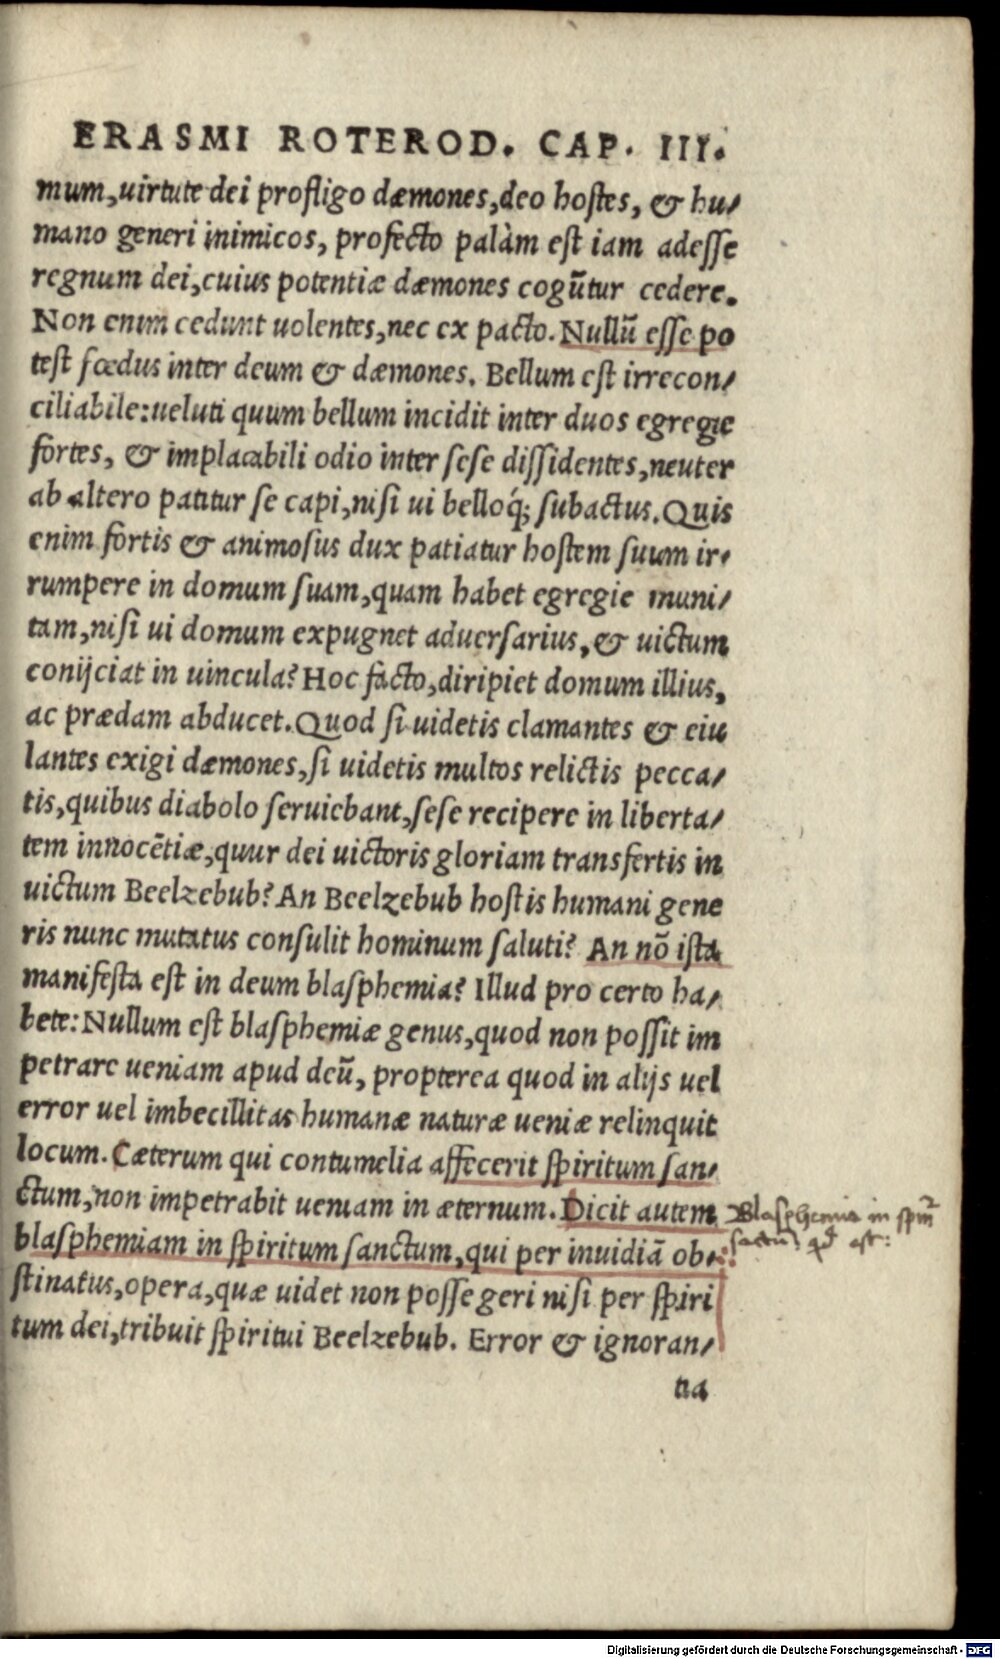 ERASMI ROTEROD. CAP. III.
mum,uirtute dei profligo dæmones,deo hostes, & hu/
mano generi inimicos, profecto palàm est iam adesse
regnum dei,cuius potentiæ dæmones cogūtur cedere.
Non enim cedunt uolentes,nec ex pacto. Nullū esse po
test fœdus inter deum & dæmones. Bellum est irrecon/
ciliabile:ueluti quum bellum incidit inter duos egregie
fortes, & implacabili odio inter sese dissidentes,neuter
ab altero patitur se capi,nisi ui belloq́; subactus. Quis
enim fortis & animosus dux patiatur hostem suum ir/
rumpere in domum suam,quam habet egregie muni/
tam,nisi ui domum expugnet aduersarius,& uictum
conijciat in uincula? Hoc facto,diripiet domum illius,
ac prædam abducet. Quod si uidetis clamantes & eiu
lantes exigi dæmones,si uidetis multos relictis pecca/
tis,quibus diabolo seruiebant,sese recipere in liberta/
tem innocētiæ,quur dei uictoris gloriam transfertis in
uictum Beelzebub? An Beelzebub hostis humani gene
ris nunc mutatus consulit hominum saluti? An nō ista
manifesta est in deum blasphemia? Illud pro certo ha/
bete: Nullum est blasphemiæ genus,quod non possit im
petrare ueniam apud deū, propterea quod in alijs uel
error uel imbecillitas humanæ naturæ ueniæ relinquit
locum. Cæterum qui contumelia affecerit spiritum san/
ctum,non impetrabit ueniam in æternum. Dicit autem
Blasphemia in spm̄
blasphemiam in spiritum sanctum,qui per inuidiā ob/
sactū: qd est:
stinatus,opera,quæ uidet non posse geri nisi per spiri
tum dei,tribuit spiritui Beelzebub. Error & ignoran/
tia
Digitalisierung gefördert durch die Deutsche Forschungsgemeinschaft - DFG